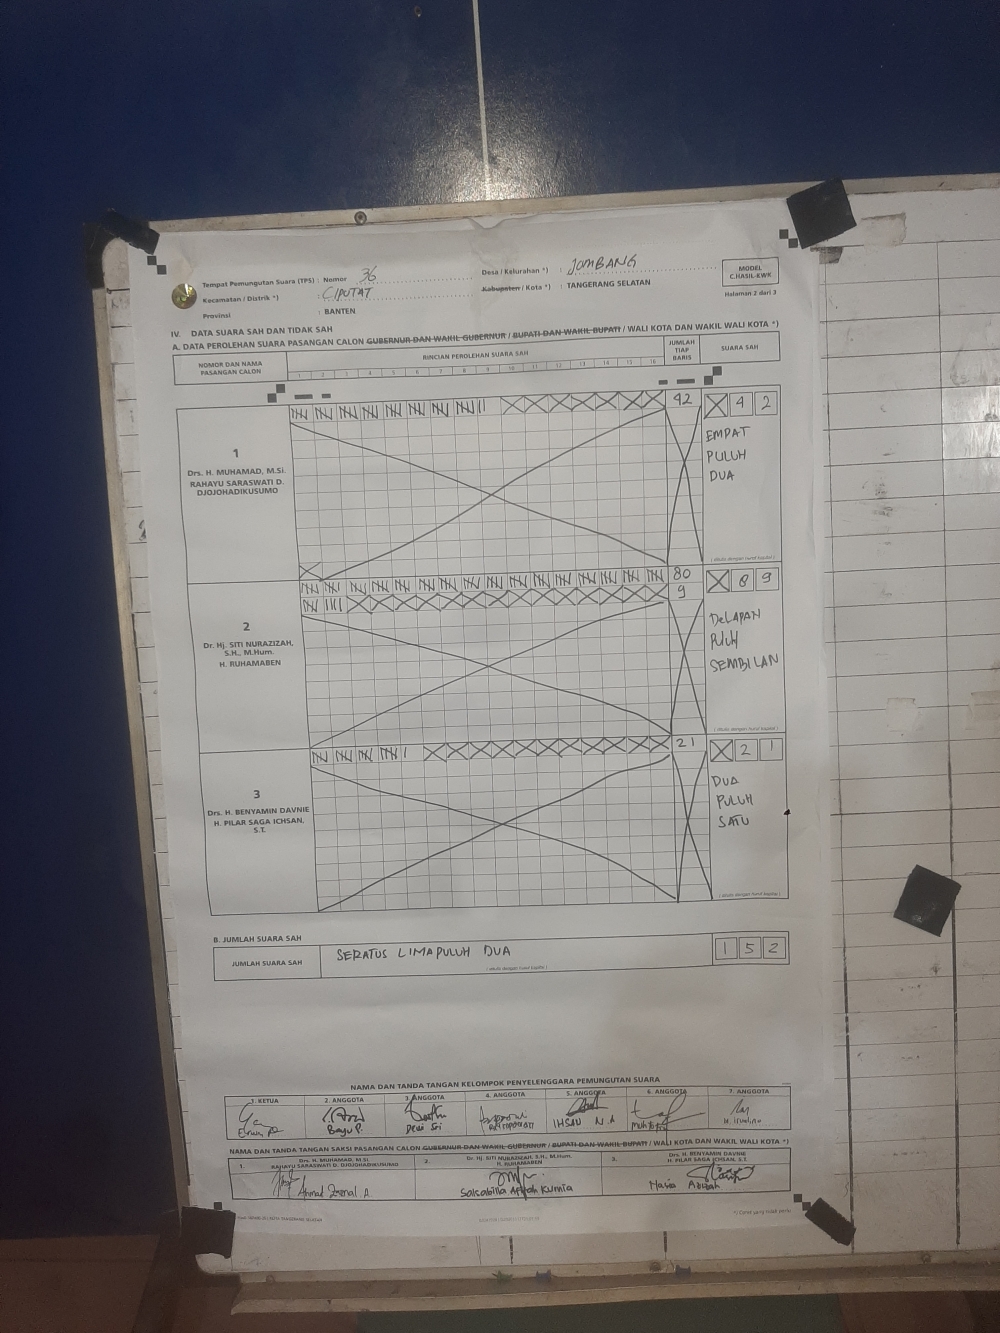 Tempat Pemungutan Suara (TPS) : Nomor 36
Desa / Kelurahan *) : JOMBANG
MODEL
C.HASIL-KWK
Kecamatan / Distrik *) : CIPUTAT
Kabupaten / Kota *) : TANGERANG SELATAN
Halaman 2 dari 3
Provinsi : BANTEN
IV. DATA SUARA SAH DAN TIDAK SAH
A. DATA PEROLEHAN SUARA PASANGAN CALON GUBERNUR DAN WAKIL GUBERNUR / BUPATI DAN WAKIL BUPATI / WALI KOTA DAN WAKIL WALI KOTA *)
NOMOR DAN NAMA
PASANGAN CALON
RINCIAN PEROLEHAN SUARA SAH
1 2 3 4 5 6 7 8 9 10 11 12 13 14 15 16
JUMLAH
TIAP
BARIS
SUARA SAH
1
Drs. H. MUHAMAD, M.Si.
RAHAYU SARASWATI D.
DJOJOHADIKUSUMO
42
X 4 2
EMPAT
PULUH
DUA
(ditulis dengan huruf kapital)
2
Dr. Hj. SITI NURAZIZAH,
S.H., M.Hum.
H. RUHAMABEN
80
9
X 8 9
DeLAPAN
PULUH
SEMBILAN
(ditulis dengan huruf kapital)
3
Drs. H. BENYAMIN DAVNIE
H. PILAR SAGA ICHSAN,
S.T.
21
X 2 1
DUA
PULUH
SATU
(ditulis dengan huruf kapital)
B. JUMLAH SUARA SAH
JUMLAH SUARA SAH
SERATUS LIMA PULUH DUA
(ditulis dengan huruf kapital)
1 5 2
NAMA DAN TANDA TANGAN KELOMPOK PENYELENGGARA PEMUNGUTAN SUARA
1. KETUA 2. ANGGOTA 3. ANGGOTA 4. ANGGOTA 5. ANGGOTA 6. ANGGOTA 7. ANGGOTA
Bayu P. Dewi Sri IHSAN N.A
NAMA DAN TANDA TANGAN SAKSI PASANGAN CALON GUBERNUR DAN WAKIL GUBERNUR / BUPATI DAN WAKIL BUPATI / WALI KOTA DAN WAKIL WALI KOTA *)
1. Drs. H. MUHAMAD, M.Si.
RAHAYU SARASWATI D. DJOJOHADIKUSUMO
2. Dr. Hj. SITI NURAZIZAH, S.H., M.Hum.
H. RUHAMABEN
3. Drs. H. BENYAMIN DAVNIE
H. PILAR SAGA ICHSAN, S.T.
Ahmad
Salsabilla Kurnia
*) Coret yang tidak perlu